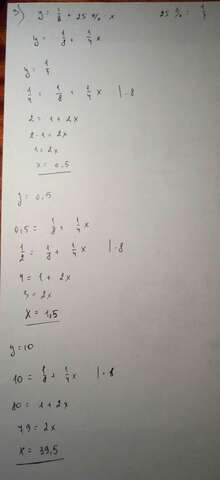 y = 1/8 + 25 % · x    25 % = 1/4
y = 1/8 + 1/4 x
y = 1/4
1/4 = 1/8 + 1/4 x | · 8
2 = 1 + 2x
2 - 1 = 2x
1 = 2x
x = 0,5
y = 0,5
0,5 = 1/8 + 1/4 x
1/2 = 1/8 + 1/4 x | · 8
4 = 1 + 2x
3 = 2x
x = 1,5
y = 10
10 = 1/8 + 1/4 x | · 8
80 = 1 + 2x
79 = 2x
x = 39,5